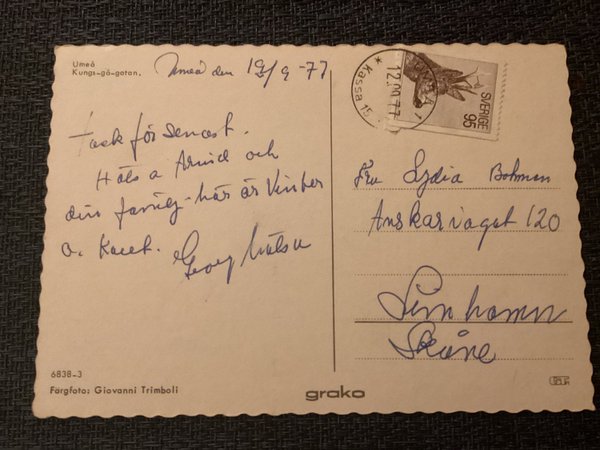 Umeå
Kungs-gå-gatan.
Umeå den 12/9 -77
Tack för senast.
Hälsa Arvid och
din familj - här är vinter
o. kallt.
Georg
UMEÅ 1
* Kassa 15
12.09.77
SVERIGE
95
Fru Lydia Bohman
Anskarvägen 120
Limhamn
Skåne
6838-3
Färgfoto: Giovanni Trimboli
grako